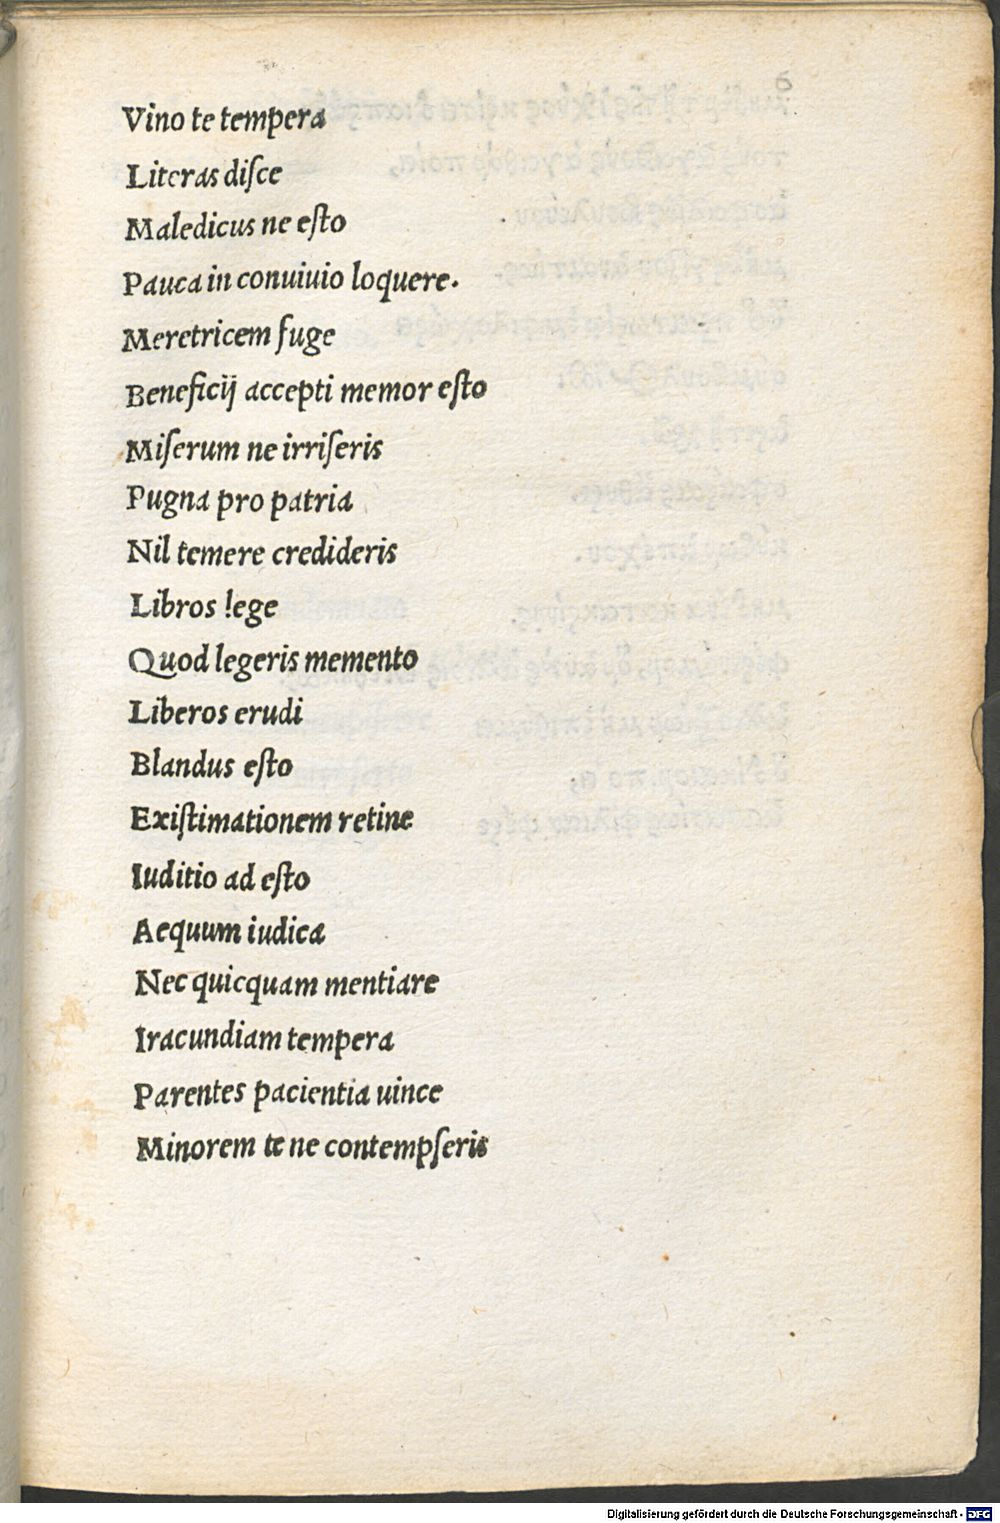 6
Vino te tempera
Literas diſce
Maledicus ne eſto
Pauca in conuiuio loquere.
Meretricem fuge
Beneficij accepti memor eſto
Miſerum ne irriſeris
Pugna pro patria
Nil temere credideris
Libros lege
Quod legeris memento
Liberos erudi
Blandus eſto
Exiſtimationem retine
Iuditio ad eſto
Aequum iudica
Nec quicquam mentiare
Iracundiam tempera
Parentes pacientia uince
Minorem te ne contempſeris
Digitalisierung gefördert durch die Deutsche Forschungsgemeinschaft - DFG